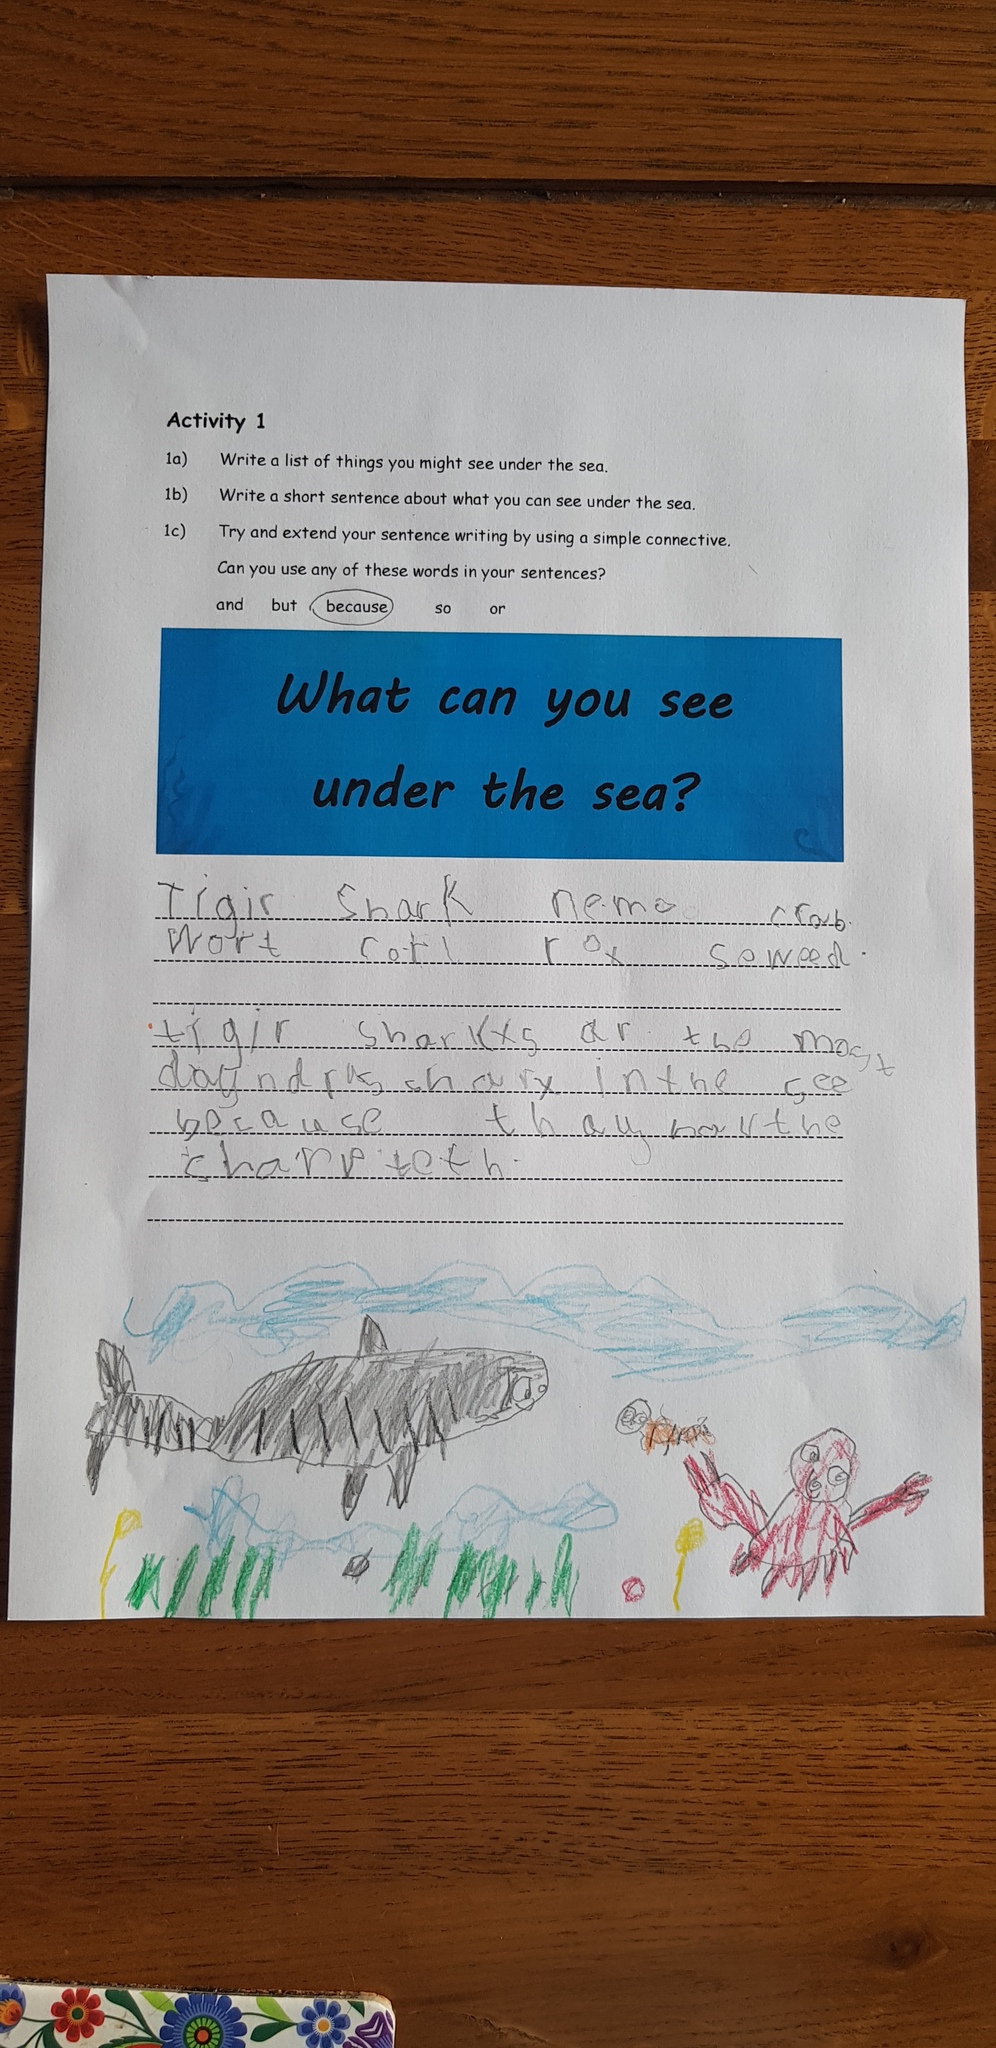 Activity 1
1a) Write a list of things you might see under the sea.
1b) Write a short sentence about what you can see under the sea.
1c) Try and extend your sentence writing by using a simple connective.
Can you use any of these words in your sentences?
and but because so or
What can you see
under the sea?
Tigir Shark nemo crab.
Wort corl rox seweed.
tigir sharkxs ar the most
in the see
because thay the
sharp teth.